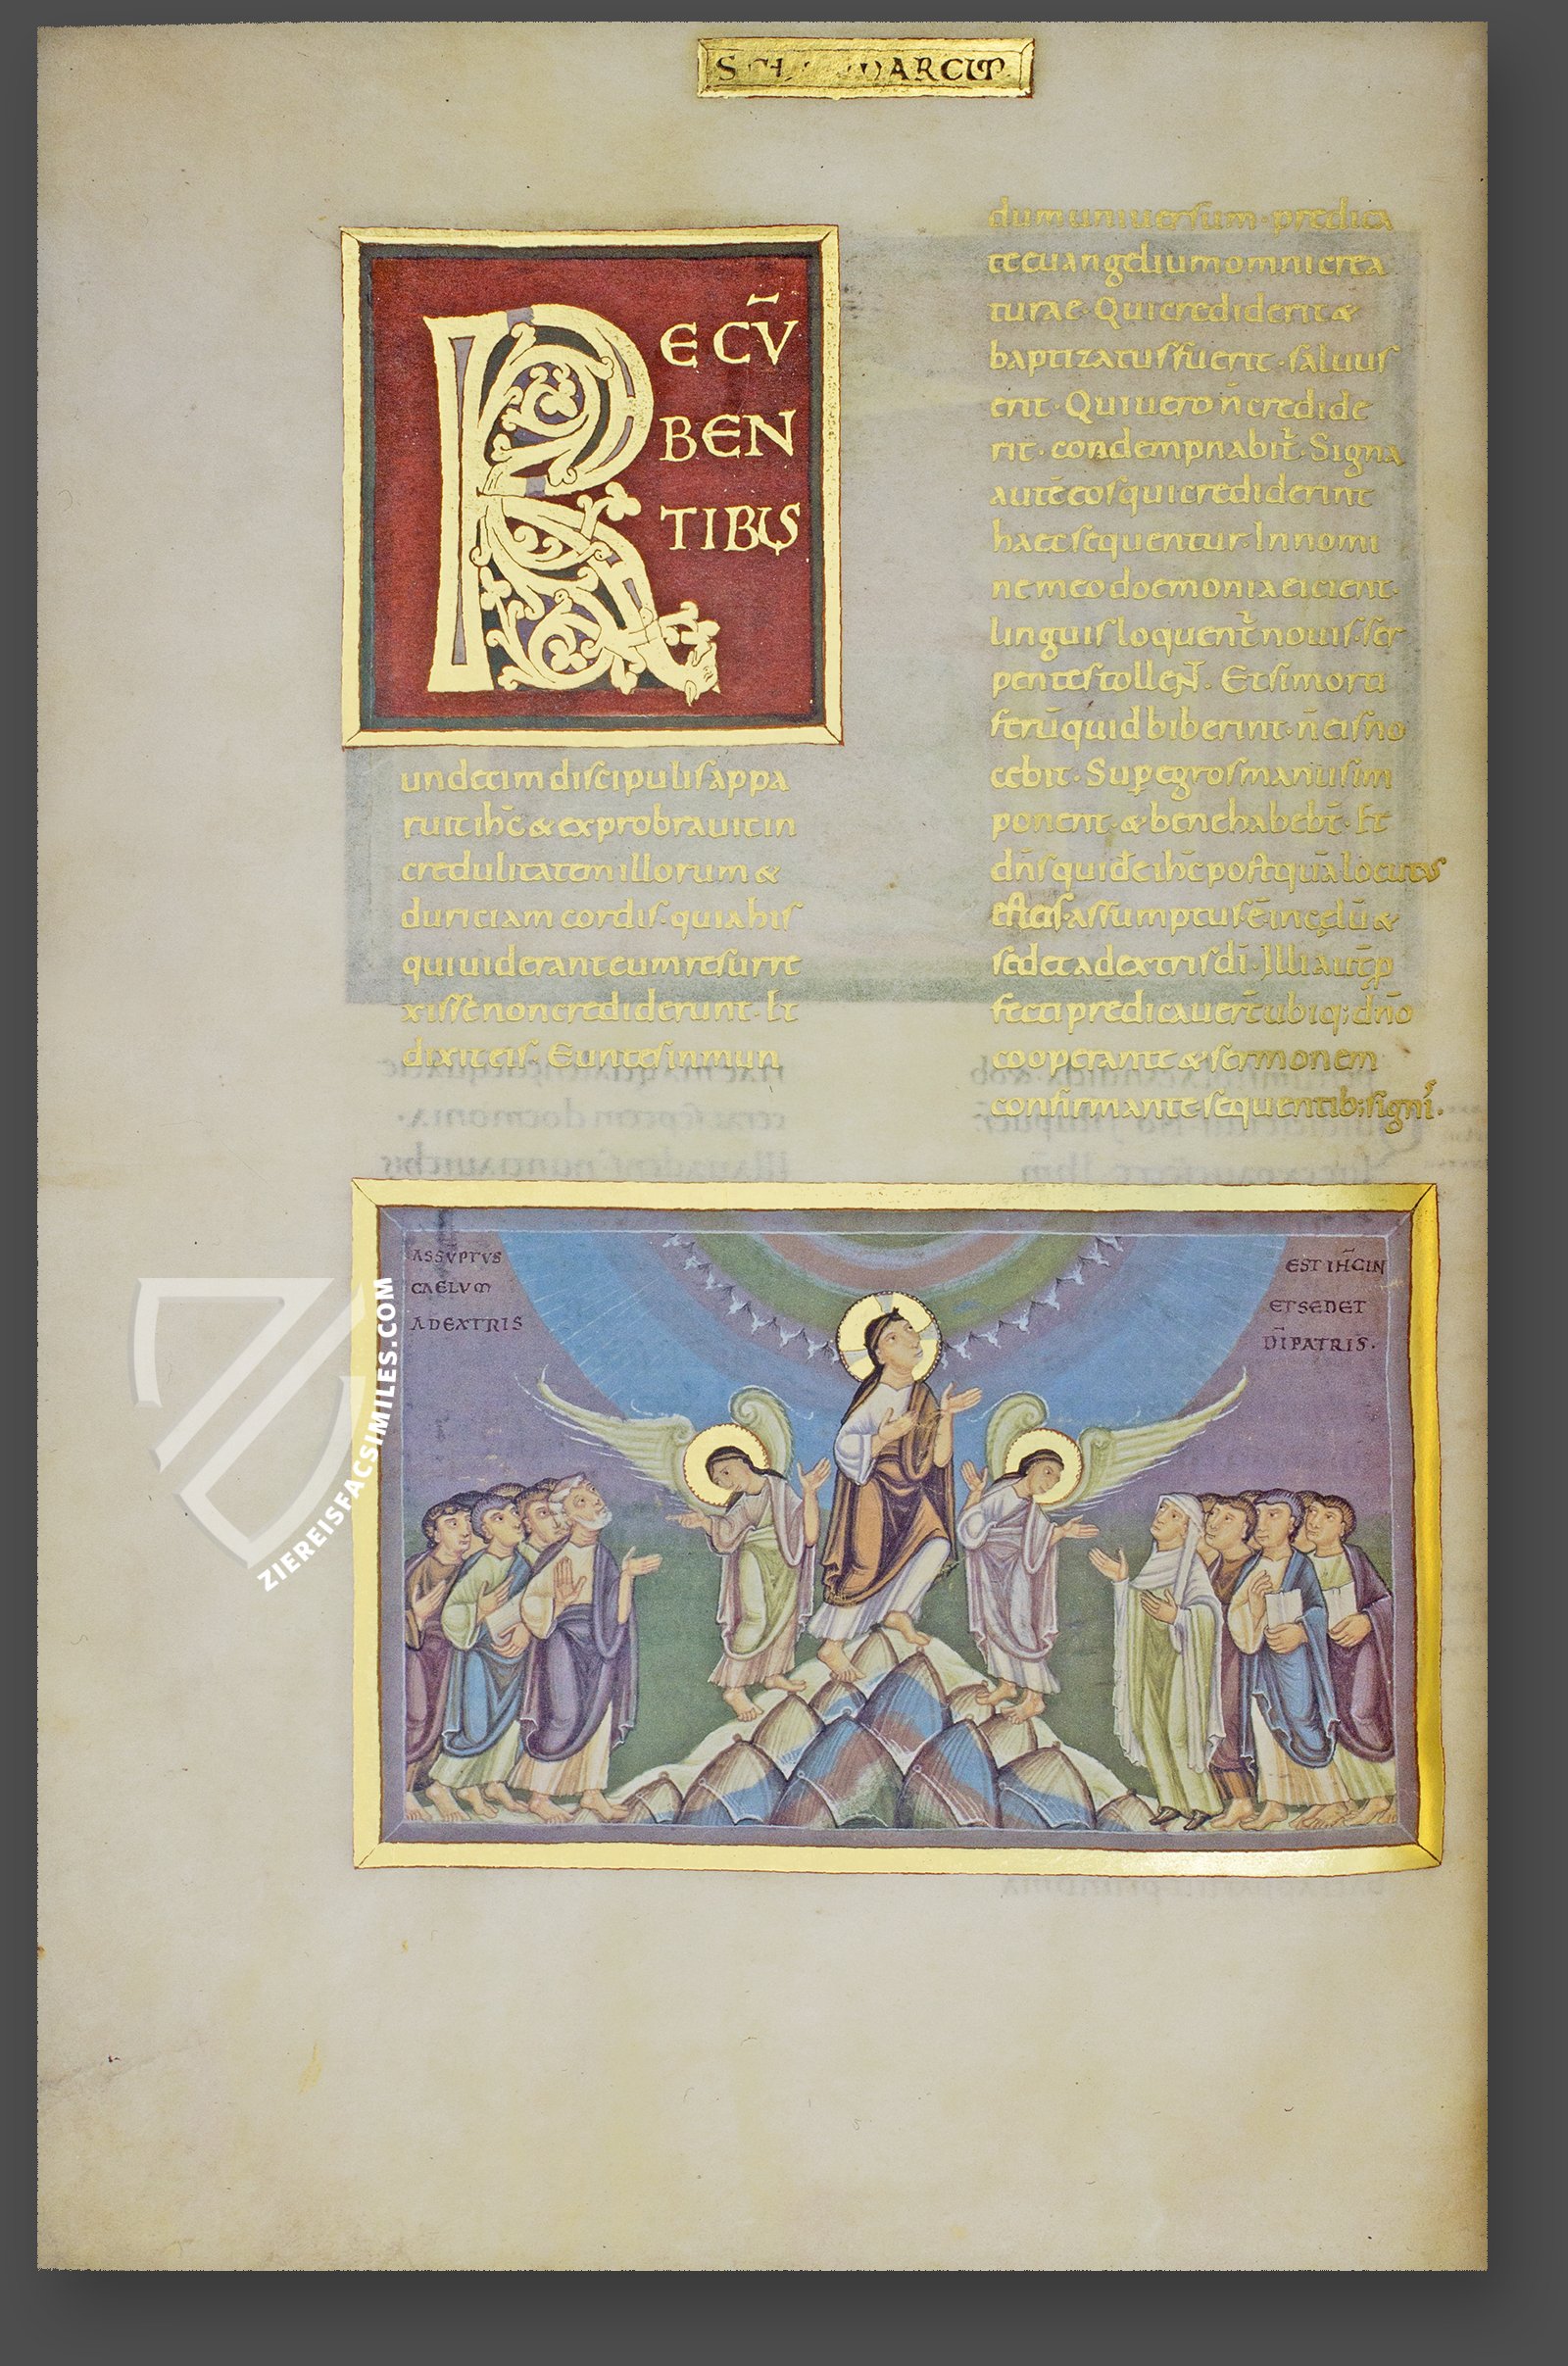 MARCUM
RECV̄
BEN
TIBUS
undecim discipulis appa
ruit ihc̄ & exprobrauit in
credulitatem illorum &
duriciam cordis· quia his
qui uiderant eum resurre
xisse non crediderunt· Et
dixit eis· Euntes in mun
dum uniuersum· predica
te euangelium omni crea
turae· Qui crediderit &
baptizatus fuerit· saluus
erit· Qui uero n̄ credide
rit· condempnabit̄· Signa
autē eos qui crediderint
haec sequentur· In nomi
ne meo doemonia eicient·
linguis loquent̄ nouis· ser
pentes tollen̄t· Et si morti
ferū quid biberint· n̄ eis no
cebit· Sup̱ egros manus im
ponent· & bene habebt̄· Et
dn̄s quidē ihc̄ postquā locutus
est eis· assumptus ē in cęlū &
sedet a dextris dī· Illi aut̄ p̱
fecti predicauer̄t ubiq; dn̄o
cooperante & sermonem
confirmante· sequentib; signis·
ASSVPTVS EST IHC̄ IN
CAELVM ET SEDET
A DEXTRIS DĪ PATRIS·
ZIEREISFACSIMILES.COM